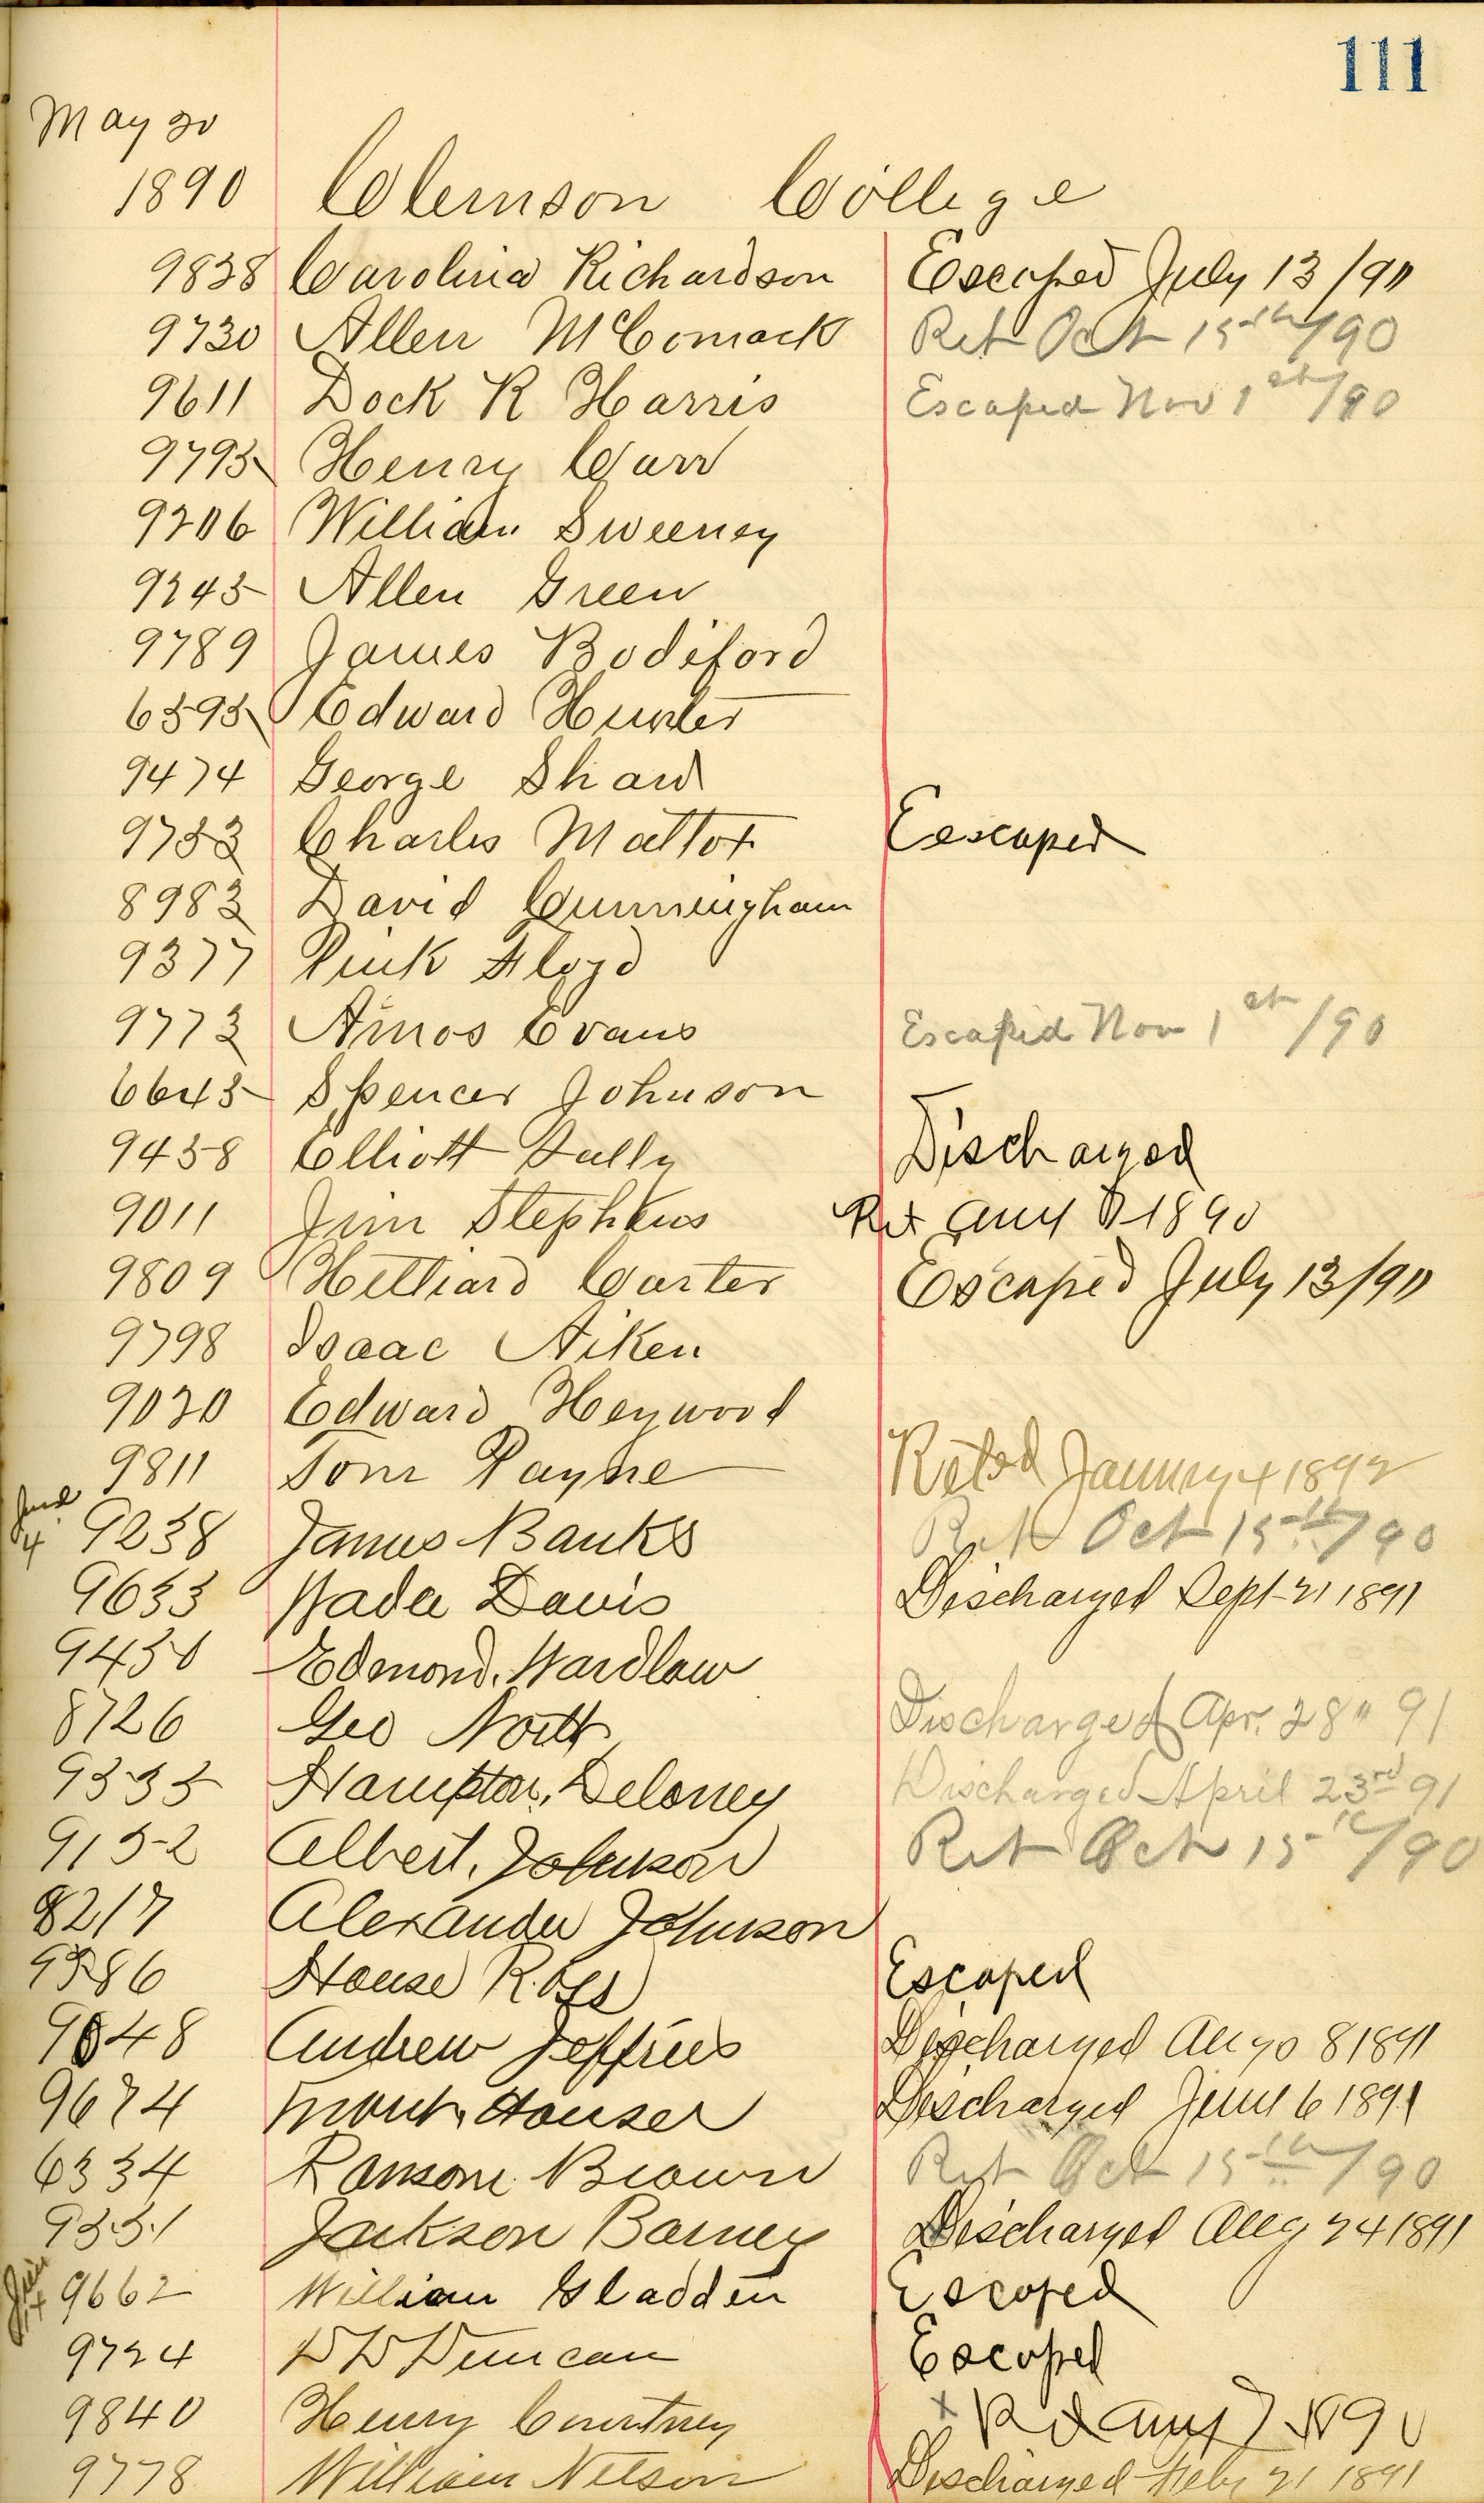 111
May 20
1890 Clemson College
9838 Carolina Richardson Escaped July 13/90
9730 Allen McComack Ret Oct 15th/90
9611 Dock R Harris Escaped Nov 1st/90
9795 Henry Carr
9206 William Sweeney
9245 Allen Green
9789 James Bodiford
6595 Edward Hunter
9474 George Shaw
9753 Charles Mattox Eescaped
8983 David Cunningham
9377 Pink Floyd
9773 Amos Evans Escaped Nov 1st/90
6645 Spencer Johnson
9458 Elliott Tully Discharged
9011 Jim Stephens Ret Aug 1890
9809 Hilliard Carter Escaped July 13/90
9798 Isaac Aiken
9020 Edward Heywood
9811 Tom Payne Retd January 4 1892
June 4 9238 James Banks Ret Oct 15th/90
9633 Wade Davis Discharged Sept 21 1891
9450 Edmond Wardlaw
8726 Geo North Discharged Apr. 28" 91
9335 Hampton Deloney Discharged April 23rd 91
9152 Albert Johnson Ret Oct 15th/90
8217 Alexander Johnson
House Ross Escaped
9848 Andrew Jeffries Discharged Aug 8 1891
9674 Houser Discharged June 6 1891
6334 Ransom Brown Ret Oct 15th/90
9351 Jackson Barney Discharged Aug 24 1891
9662 William Gladden Escaped
9724 D D Duncan Escaped
9840 Henry Courtney x Ret Aug 7 1890
9778 William Nelson Discharged Feby 21 1891